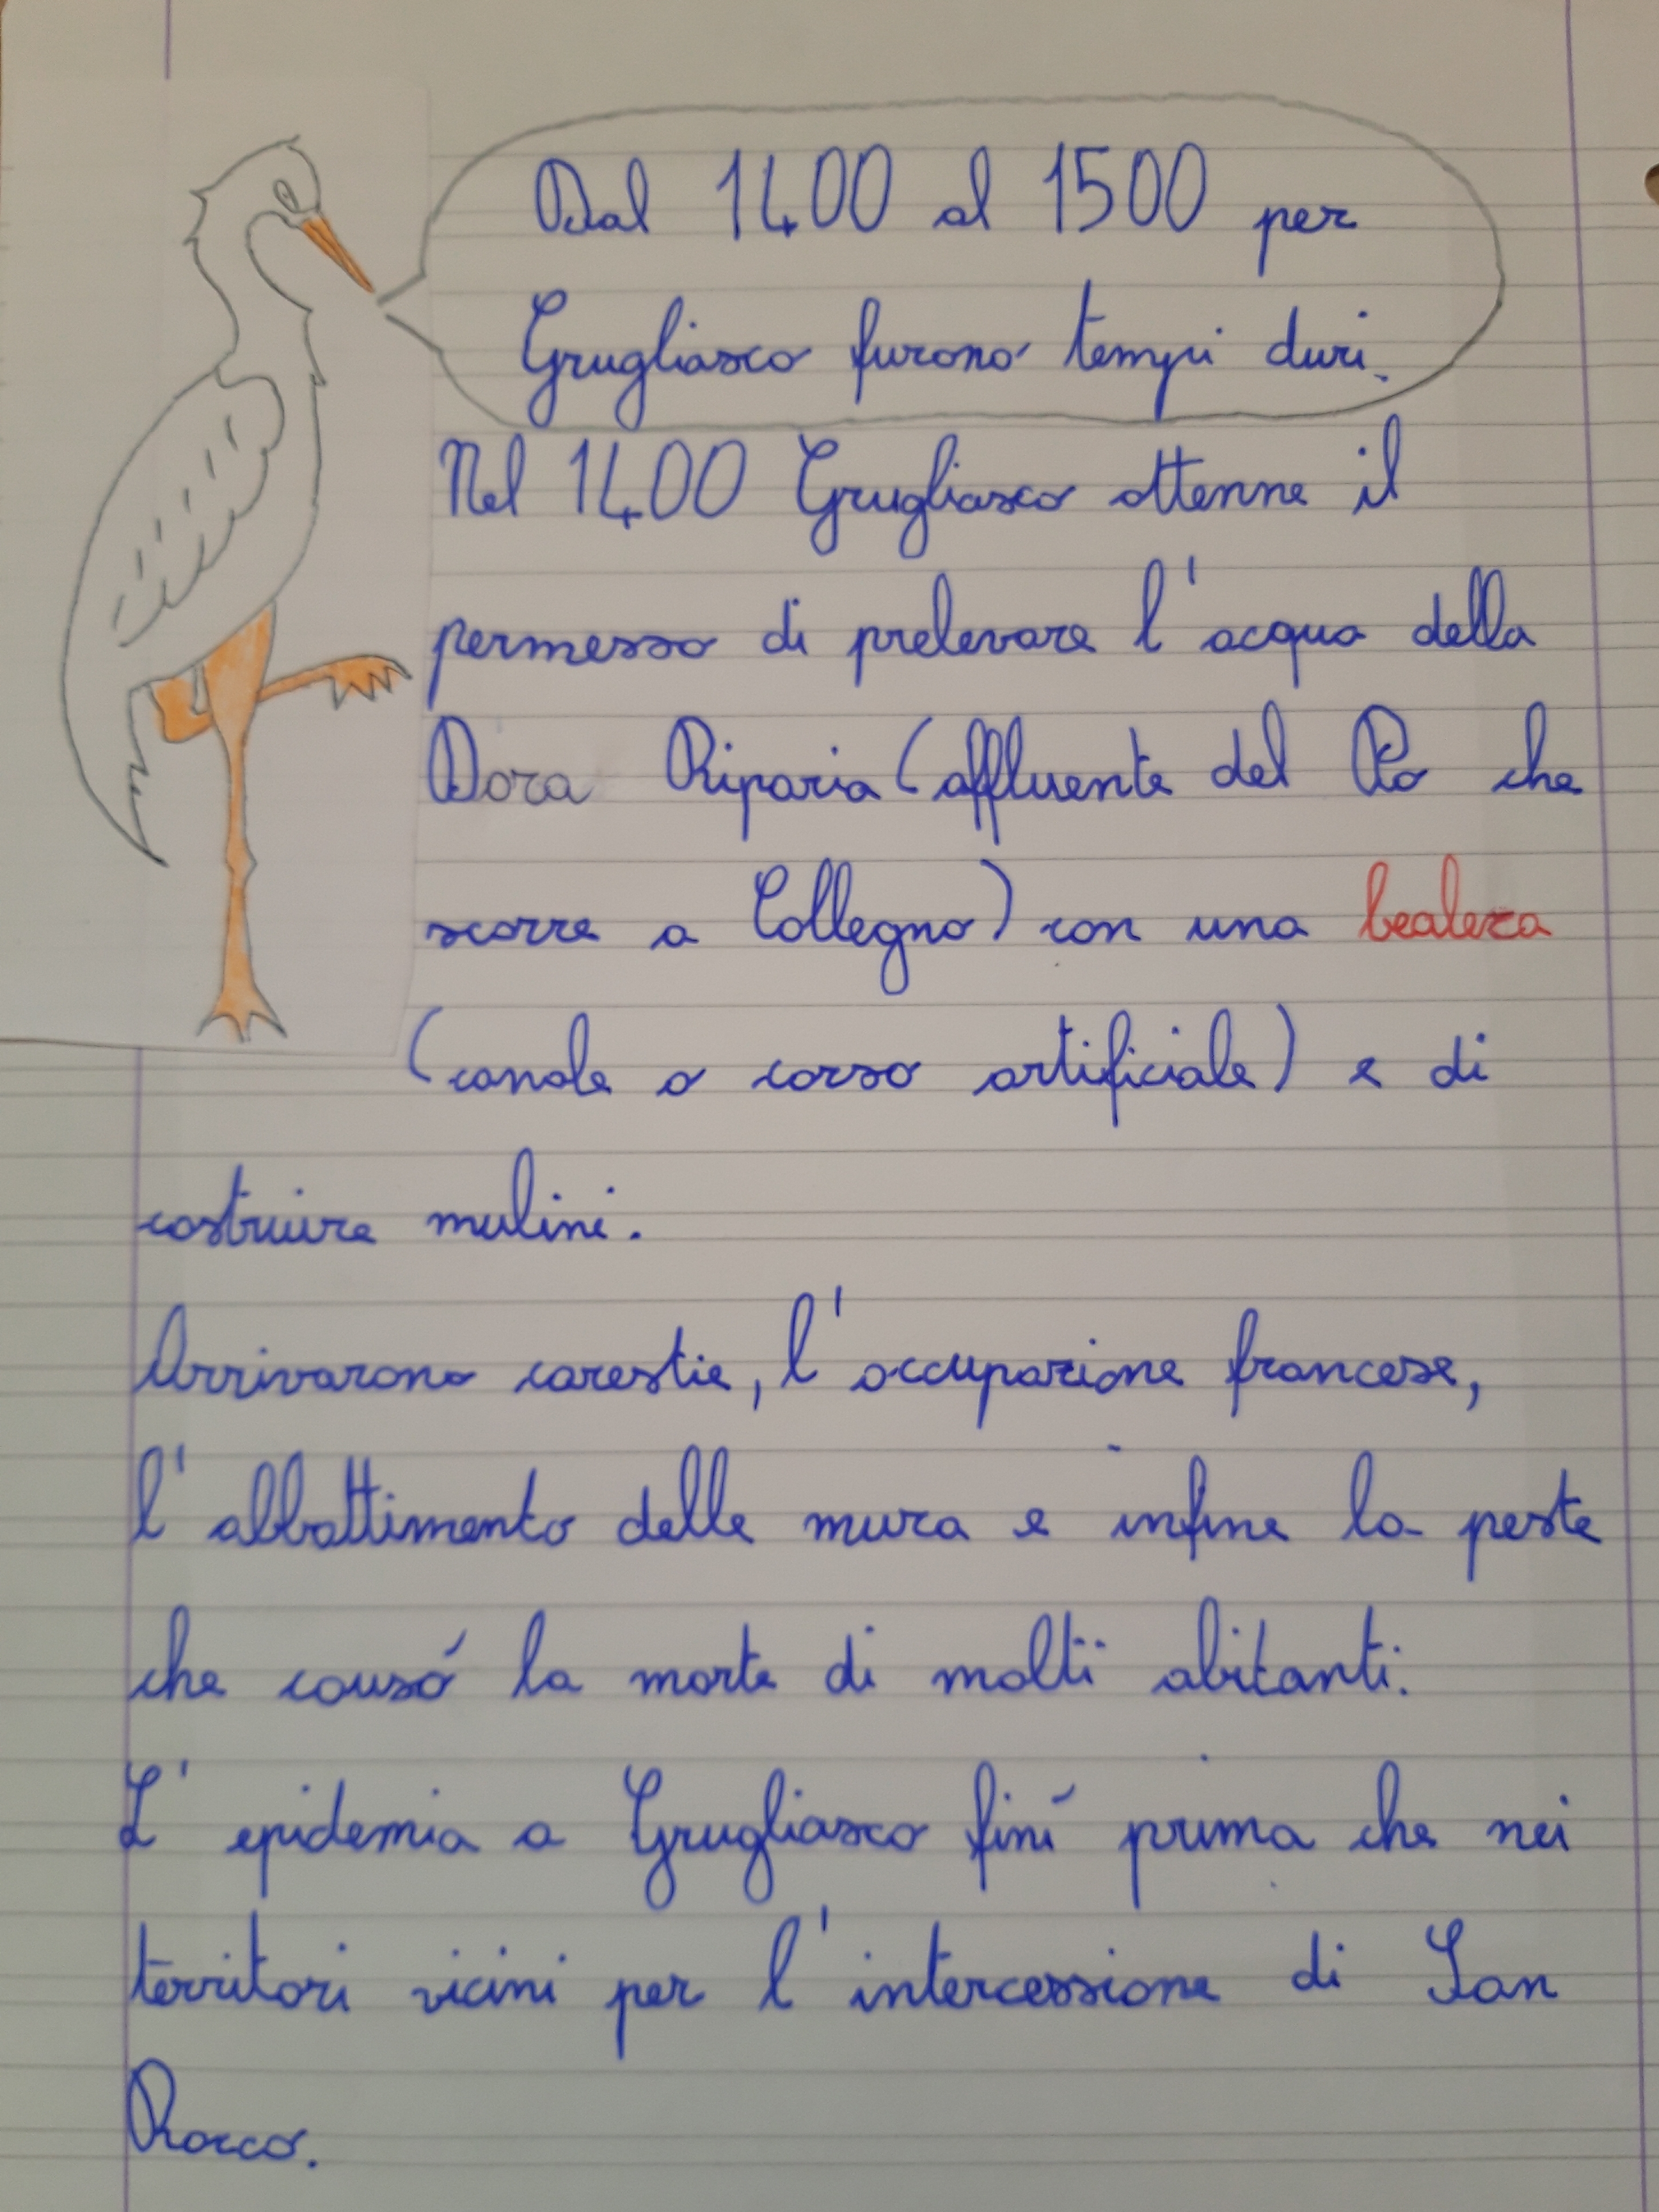 Dal 1400 al 1500 per
Grugliasco furono tempi duri.
Nel 1400 Grugliasco ottenne il
permesso di prelevare l'acqua della
Dora Riparia (affluente del Po che
scorre a Collegno) con una bealera
(canale o corso artificiale) e di
costruire mulini.
Arrivarono carestie, l'occupazione francese,
l'abbattimento delle mura e infine la peste
che causó la morte di molti abitanti.
L'epidemia a Grugliasco finí prima che nei
territori vicini per l'intercessione di San
Rocco.